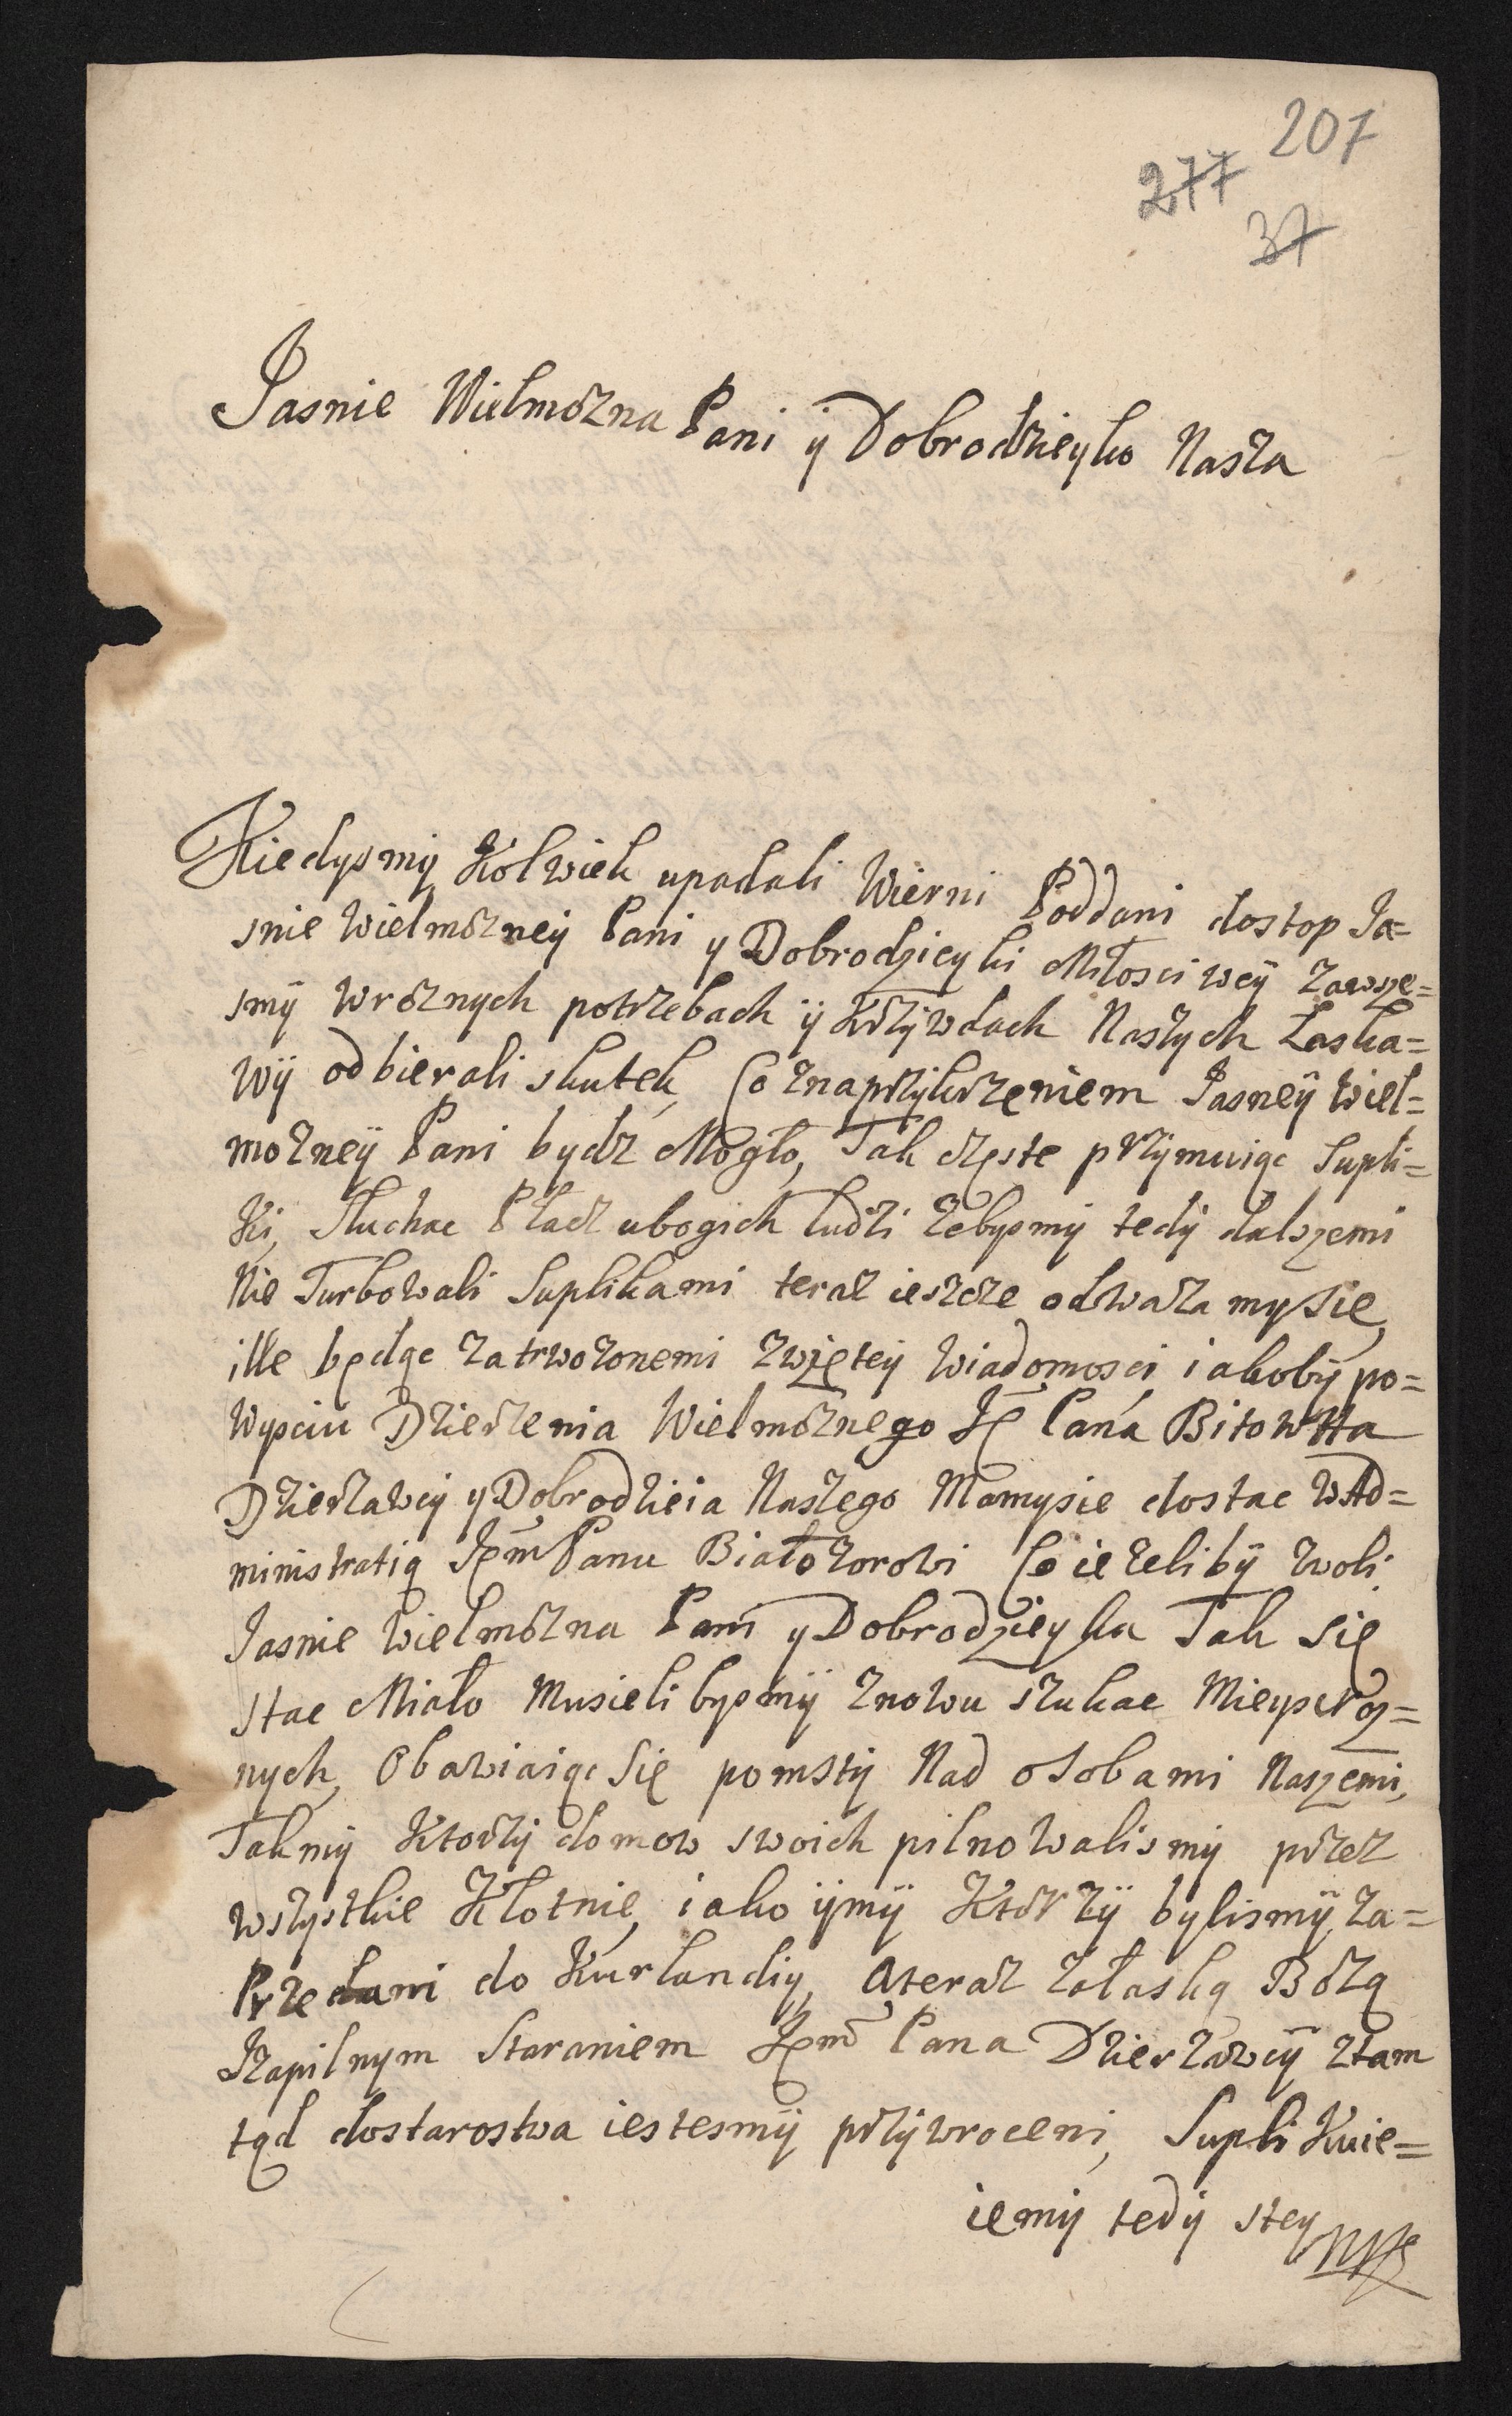 207
277
37
Jasnie Wielmożna Pani ÿ Dobrodzieyko Nasza
Kiedysmÿ Kolwiek upadali Wierni Poddani dostop Ja=
snie Wielmożneÿ Pani y Dobrodzieyki Miłosciweÿ zawsze=
smÿ wróżnych potrzebach ÿ Krzÿwdach Naszych Łaska=
wÿ odbierali skutek, Co znaprzÿkrzeniem Jasneÿ Wiel=
możneÿ Pani bydz Mogło, Tak częste przÿmuiąc Supli=
ki, Słuchac Płacz ubogich ludzi żebysmÿ tedÿ dalszemi
Nie Turbowali Suplikami teraz ieszcze odważamysie,
ille będąc zatrwożonemi zwzięteÿ wiadomosci iakobÿ po=
wysciu Dzierżenia Wielmożnego JP Pana Bitowtta
Dzierżawcÿ y Dobrodzieia Naszego Mamysie dostac wAd=
ministratią JPm Panu Białłozorowi Co ieżelibÿ zwoli
Jasnie Wielmożna Pani y Dobrodzieyka Tak się
stac Miało Musielibysmÿ znowu szukac Mieysc róż=
nych, Obawiaiąc Się pomstÿ Nad osobami Naszemi,
Takmÿ Ktorzÿ domow swoich pilnowalismÿ przez
wszystkie Kłotnie, iako ÿmÿ Którzÿ bylismÿ za=
Przedani do Kurlandiÿ, Ateraz załaską Bożą
Jzapilnym Staraniem JPm Pana Dzierżawcÿ ztam
tąd dostarostwa iestesmÿ przÿwroceni, Suplikuie=
iemÿ tedÿ stey